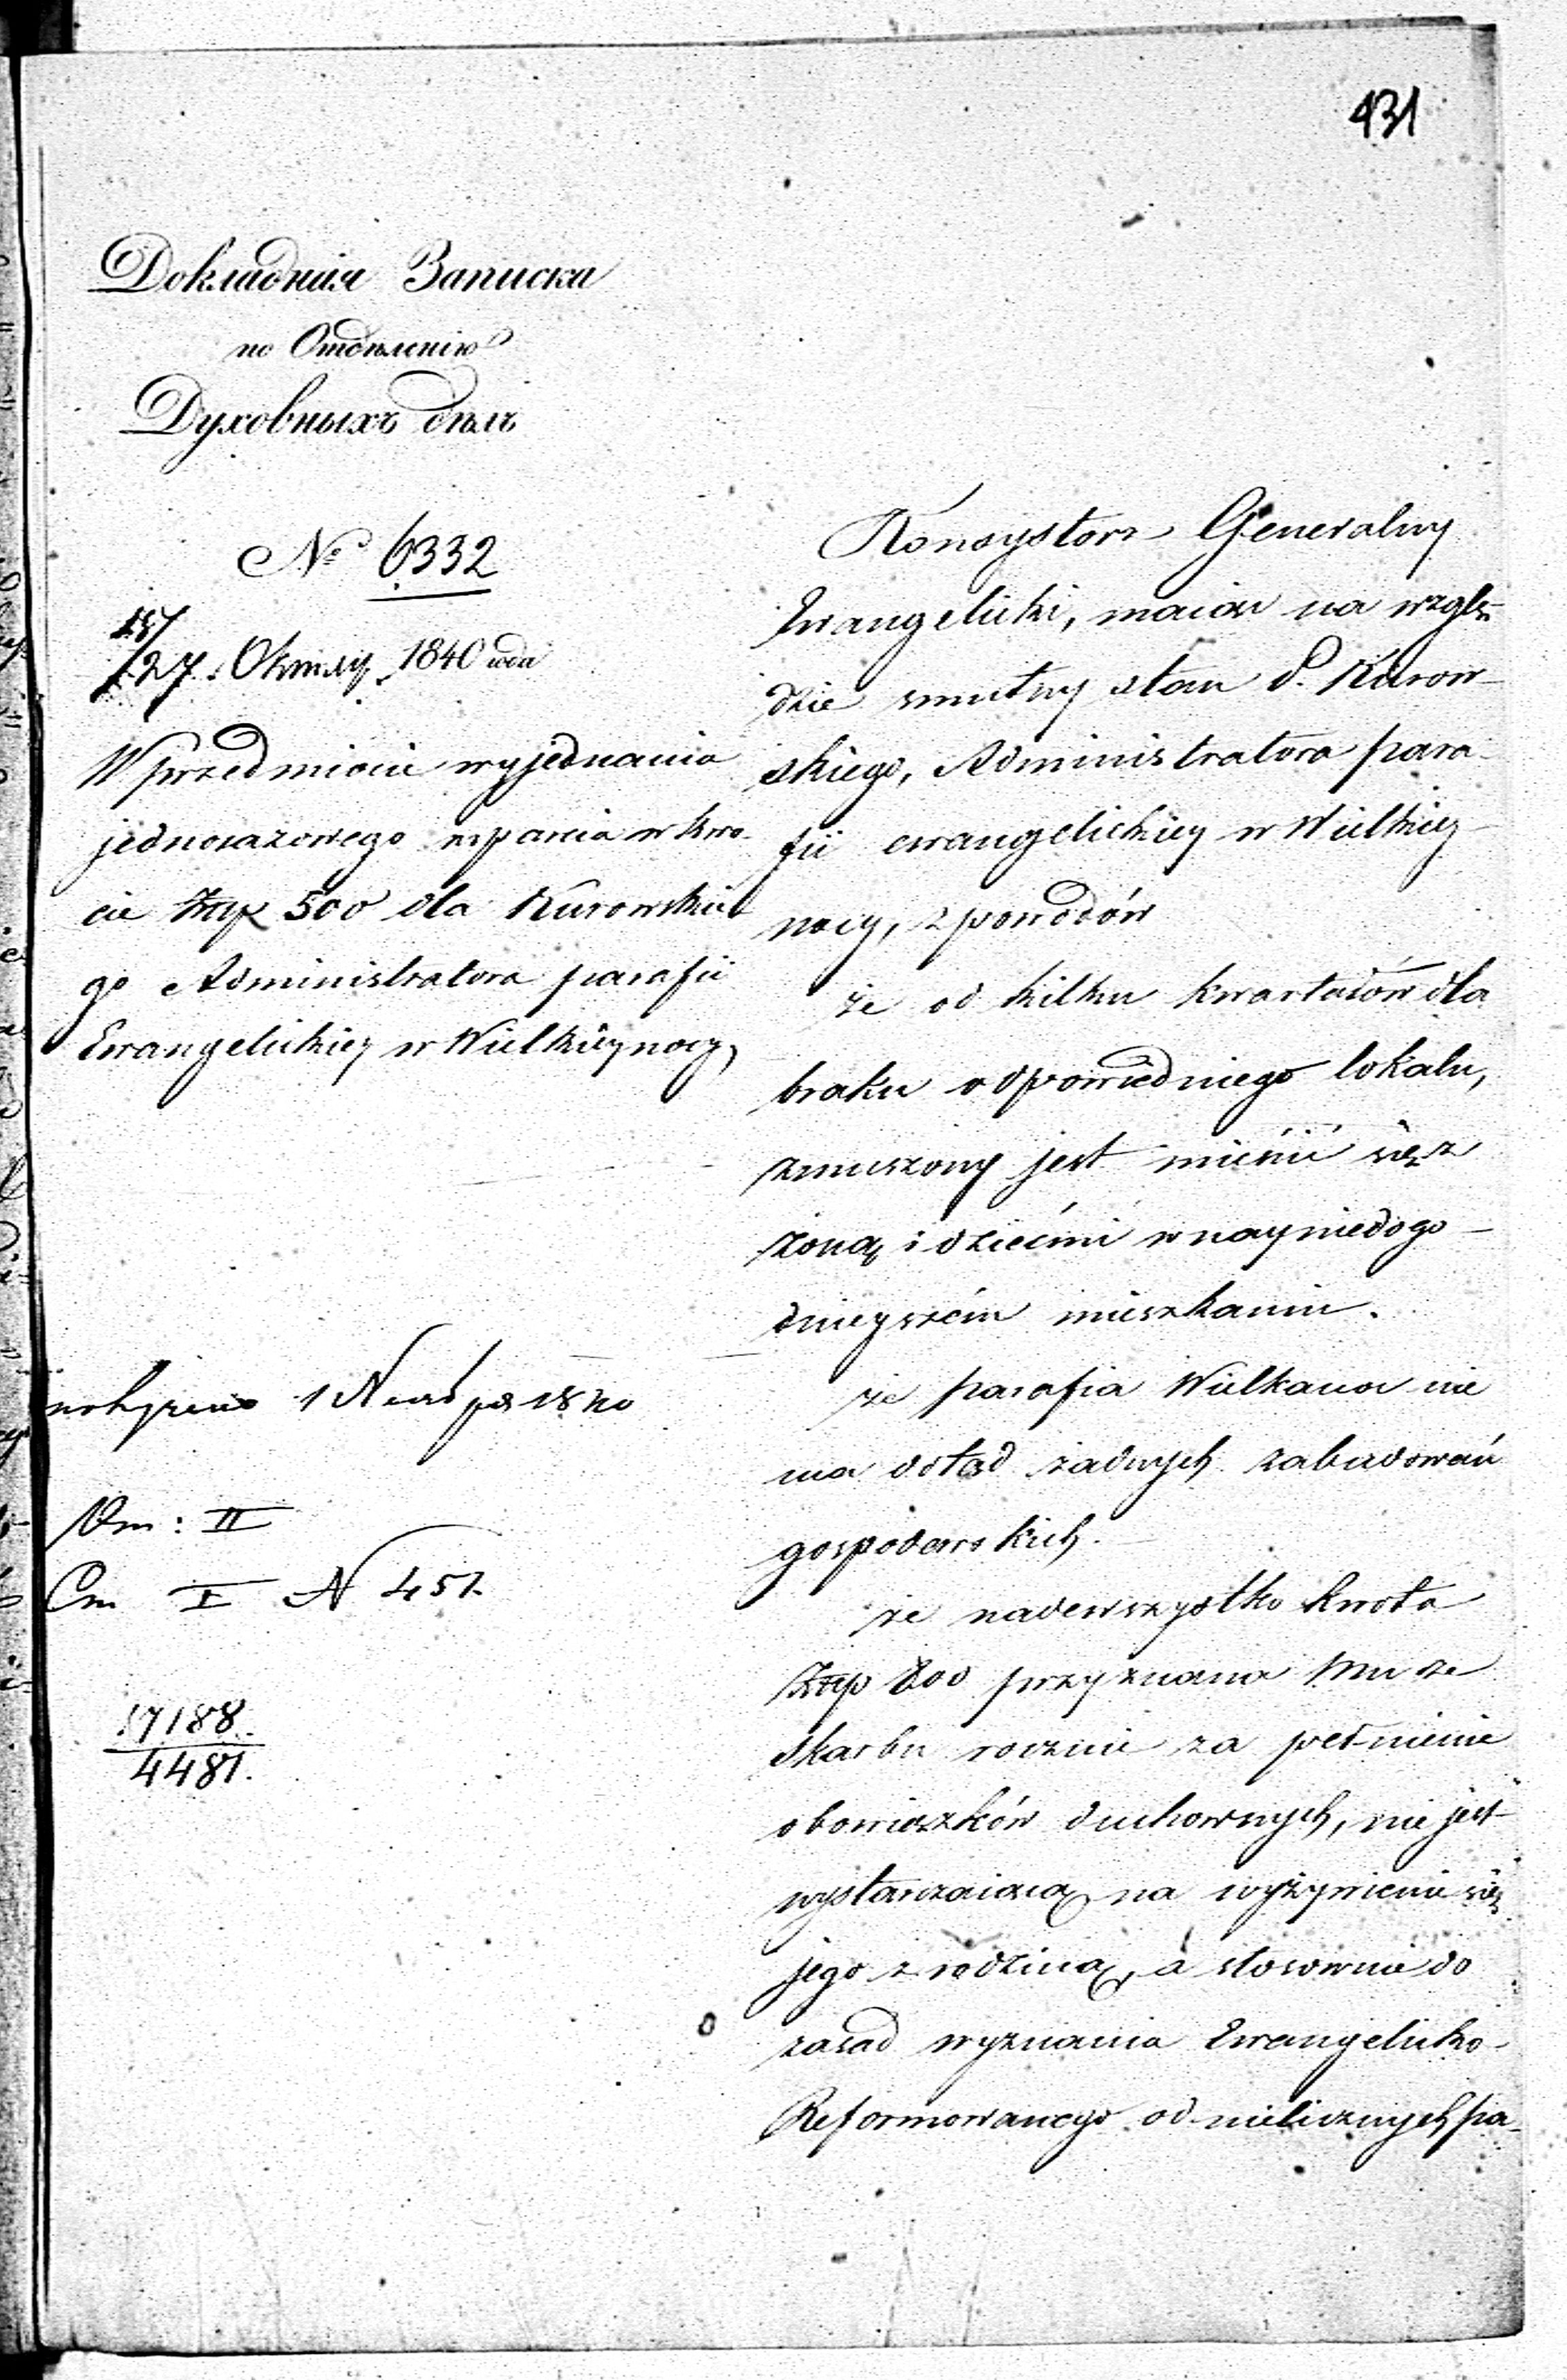 431
Докладная Записка
по Отдѣленію
Духовныхъ дѣлъ
№ 6332
15/27 1840 года
W przedmiocie wyjednania
jednorazowego wsparcia w kwo-
cie Złp 500 dla Kurowskie
go Administratora parafii
Ewangelickiey w Wielkieynocy,
1840
II
I N 451.
17188.
4481.
Konsystorz Generalny
Ewangelicki, maiąc na wzglę-
dzie smutny stan P. Kurow-
skiego, Administratora para-
fii ewangelickiey w Wielkiey-
nocy, z powodów
że od kilku kwartałów dla
braku odpowiedniego lokalu,
zmuszony jest mieścić się z
żoną i dziećmi w nayniedogo-
dnieyszém mieszkaniu.
że parafia Wielkanoc nie
ma dotąd żadnych zabudowań
gospodarskich.
że nadewszystko kwota
Złp 800 przyznana Mu ze
Skarbu rocznie za pełnienie
obowiązków duchownych, nie jest
wystarczaiącą na wyżywienie się
jego z rodziną, a stosownie do
zasad wyznania Ewangelicko-
Reformowanego od nielicznych pa-